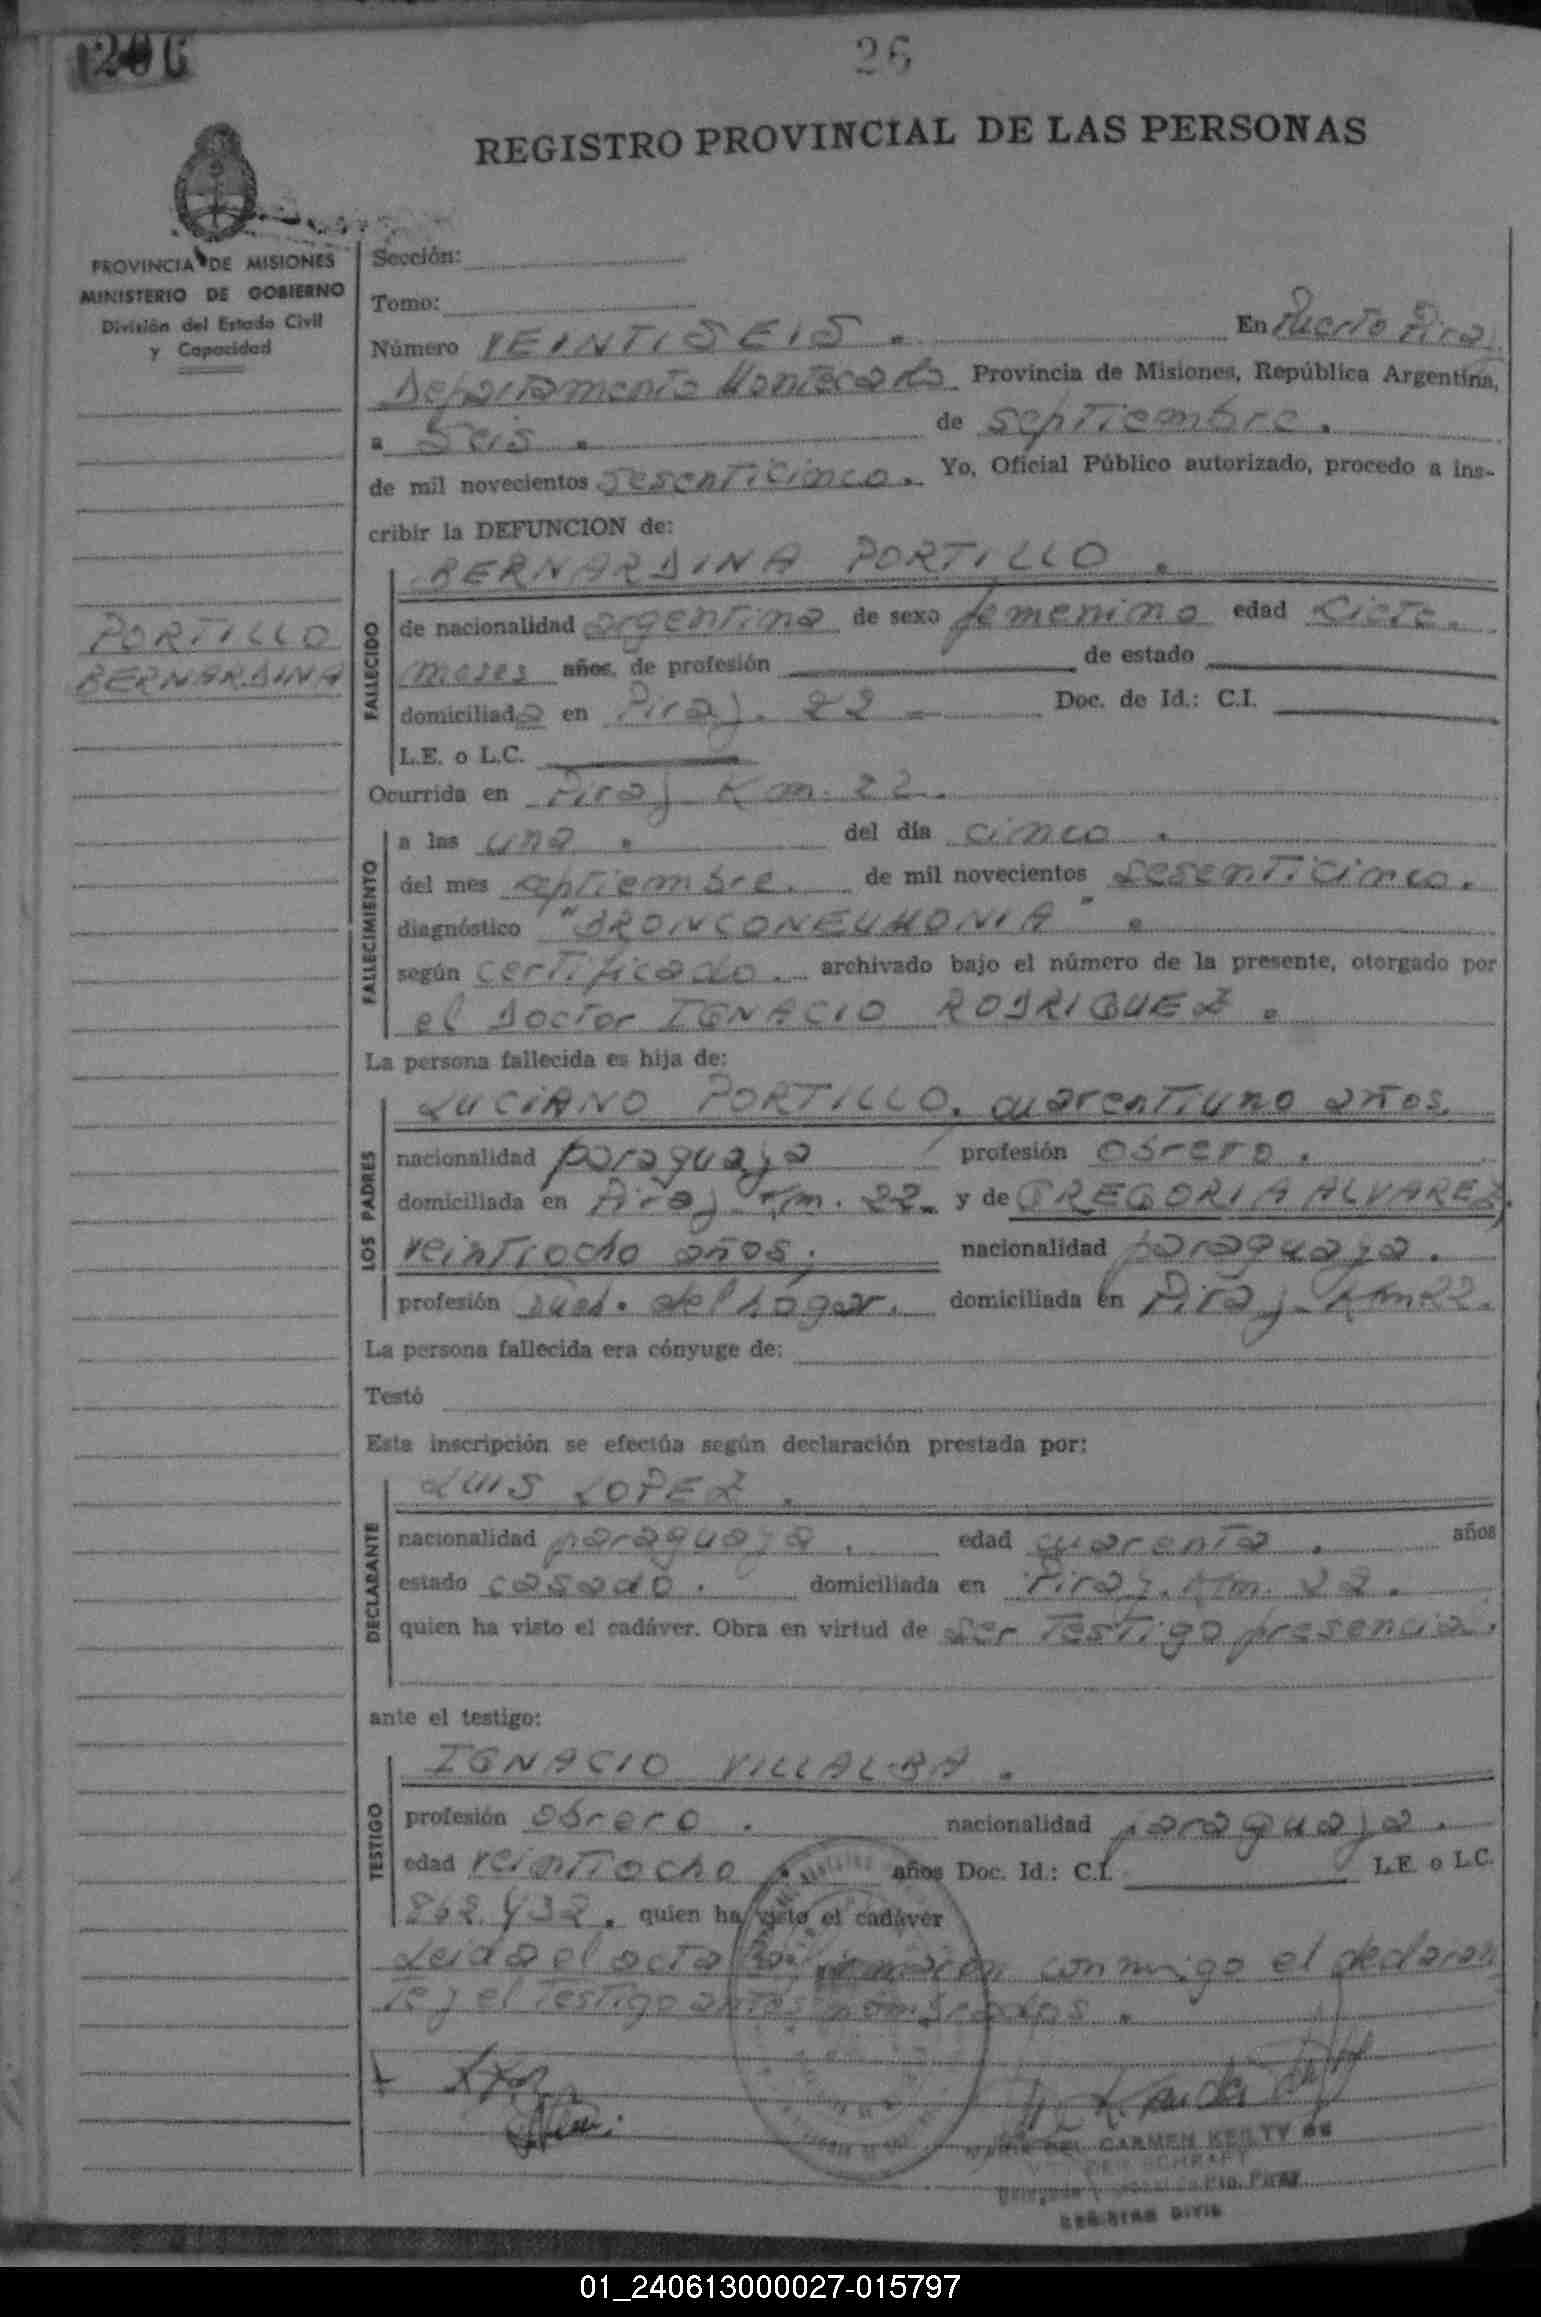 206
26
REGISTRO PROVINCIAL DE LAS PERSONAS
PROVINCIA DE MISIONES
MINISTERIO DE GOBIERNO
División del Estado Civil
y Capacidad
Sección:
Tomo:
Número VEINTISEIS. En Puerto Piray
Departamento Montecarlo Provincia de Misiones, República Argentina,
a Seis. de septiembre.
de mil novecientos sesenticinco. Yo, Oficial Público autorizado, procedo a ins-
cribir la DEFUNCION de:
BERNARDINA PORTILLO.
PORTILLO
BERNARDINA
FALLECIDO
de nacionalidad argentina de sexo femenino edad siete.
meses años, de profesión de estado
domiciliada en Piray. 22 Doc. de Id.: C.I.
L.E. o L.C.
Ocurrida en Piray Km. 22.
FALLECIMIENTO
a las una. del día cinco.
del mes septiembre. de mil novecientos sesenticinco.
diagnóstico "BRONCONEUMONIA".
según certificado. archivado bajo el número de la presente, otorgado por
el Doctor IGNACIO RODRIGUEZ.
La persona fallecida es hija de:
LOS PADRES
LUCIANO PORTILLO, cuarentiuno años.
nacionalidad paraguaya profesión obrero.
domiciliada en Piray Km. 22. y de GREGORIA ALVAREZ,
veintiocho años; nacionalidad paraguaya.
profesión del hogar. domiciliada en Piray. Km 22.
La persona fallecida era cónyuge de:
Testó
Esta inscripción se efectúa según declaración prestada por:
DECLARANTE
LUIS LOPEZ.
nacionalidad paraguaya. edad cuarenta. años
estado casado. domiciliada en Piray. Km. 22.
quien ha visto el cadáver. Obra en virtud de ser Testigo presencial.
ante el testigo:
TESTIGO
IGNACIO VILLALBA.
profesión obrero. nacionalidad paraguaya.
edad veintiocho. años Doc. Id.: C.I. L.E. o L.C.
862.432. quien ha visto el cadáver
Leida el acta conmigo el declaran
te y el Testigo antes nombrados.
MARIA DEL CARMEN KEILTY DE
Pto. Piray
01_240613000027-015797